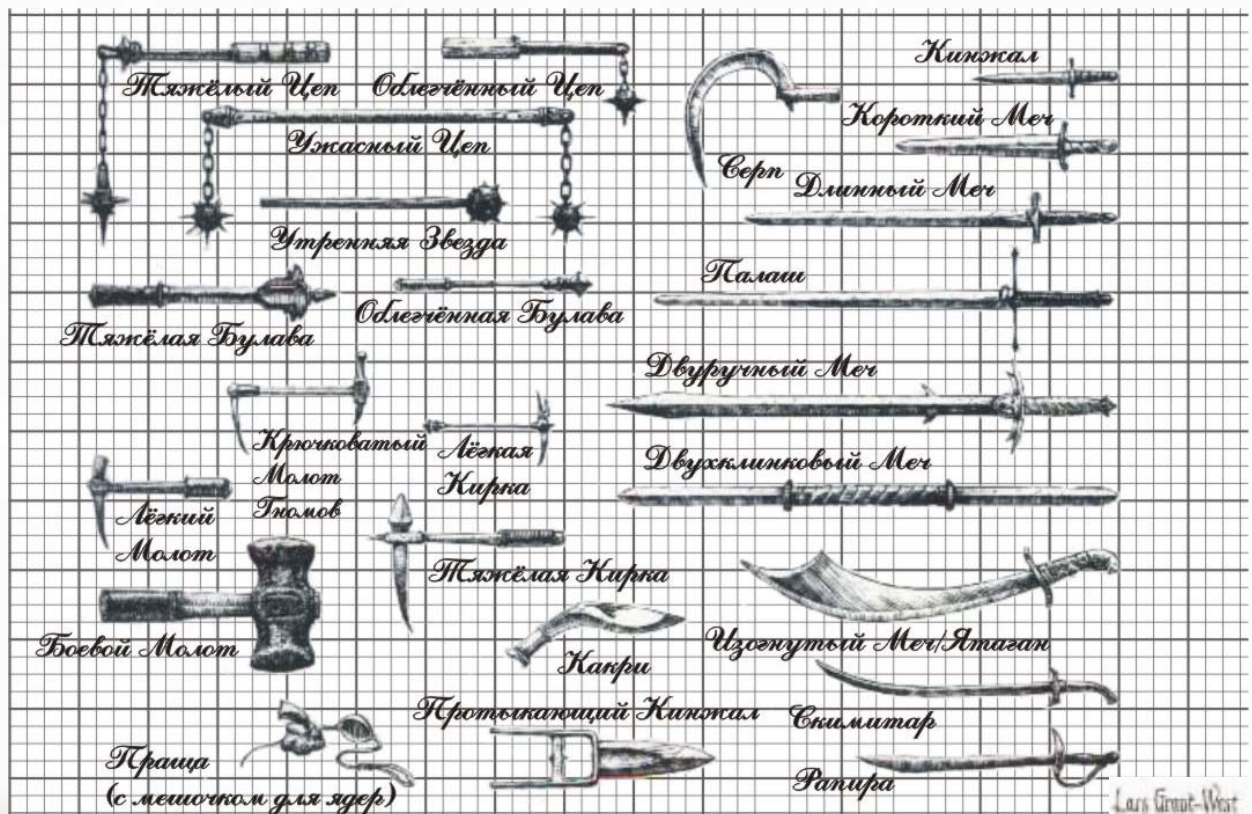 Тяжёлый Цеп
Облегчённый Цеп
Ужасный Цеп
Утренняя Звезда
Тяжёлая Булава
Облегчённая Булава
Крючковатый
Молот
Гномов
Лёгкая
Кирка
Лёгкий
Молот
Тяжёлая Кирка
Боевой Молот
Какри
Протыкающий Кинжал
Праща
(с мешочком для ядер)
Кинжал
Короткий Меч
Серп
Длинный Меч
Палаш
Двуручный Меч
Двухклинковый Меч
Изогнутый Меч/Ятаган
Скимитар
Рапира
Lars Grant-West